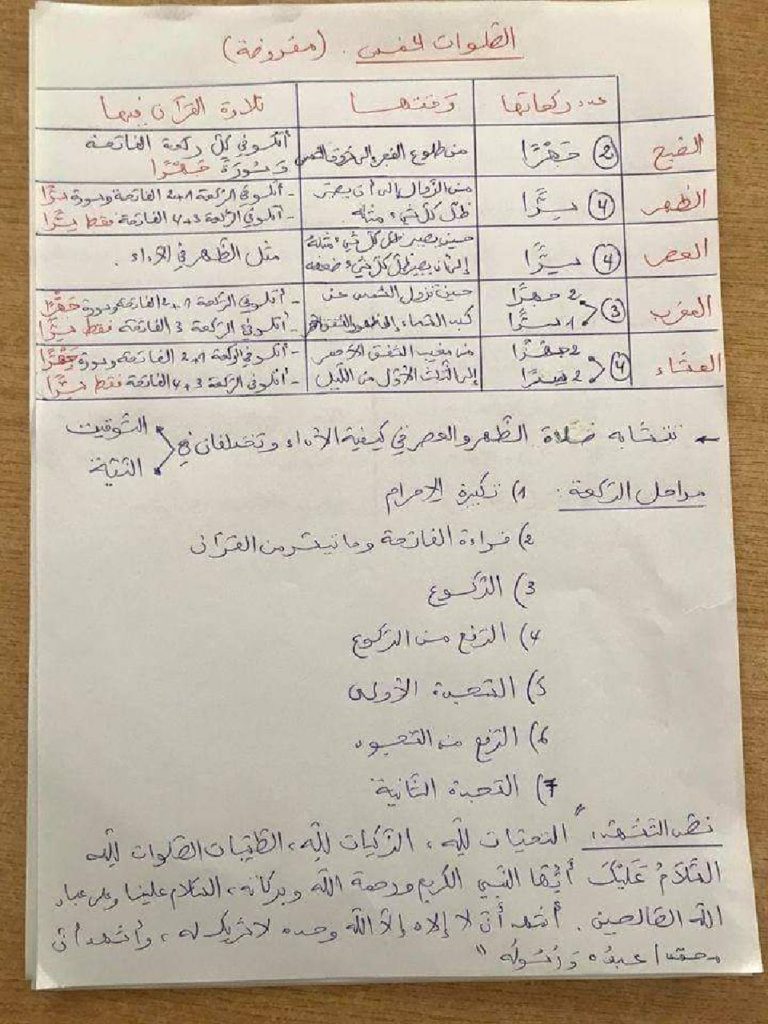 الصّلوات الخمس . (مفروضة)
عدد ركعاتها
وقتها
تلاوة القرآن فيها
الصّبح
② جَهْرًا
من طلوع الفجر إلى شروق الشمس
أتلو في كلّ ركعة الفاتحة
وَسُورَةً جَهْرًا
الظّهر
④ سِرًّا
من الزّوال إلى أن يصير
ظلّ كلّ شيء مثله
- أتلو في الركعة 1+2 الفاتحة وسورة سِرًّا
- أتلو في الركعة 3+4 الفاتحة فقط سِرًّا
العصر
④ سِرًّا
حين يصير ظلّ كلّ شيء مثله
إلى أن يصير ظلّ كلّ شيء ضعفه
مثل الظّهر في الأداء .
المغرب
③ 2 جهرًا
1 سرًّا
حين تزول الشمس عن
كبد السّماء إلى ظهور الشفق الأحمر
- أتلو في الركعة 1+2 الفاتحة وسورة جَهْرًا
- أتلو في الركعة 3 الفاتحة فقط سِرًّا
العشاء
④ 2 جهْرًا
2 سرًّا
من مغيب الشفق الأحمر
إلى الثّلث الأوّل من اللّيل
- أتلو في الركعة 1+2 الفاتحة وسورة جَهْرًا
- أتلو في الركعة 3+4 الفاتحة فقط سِرًّا
← تتشابه صلاة الظّهر والعصر في كيفية الأداء وتختلفان في
التّوقيت
النّيّة
مراحل الرّكعة : 1) تكبيرة الإحرام
2) قراءة الفاتحة وما تيسّر من القرآن
3) الرّكوع
4) الرّفع من الرّكوع
5) السّجدة الأولى
6) الرّفع من السّجود
7) السّجدة الثّانية
نصّ التّشهّد : " التحيّات للّه ، الزّكيات للّه ، الطّيّبات الصّلوات للّه
السَّلَامُ عَلَيْكَ أيُّها النّبي الكريم ورحمة اللّه وبركاته ، السّلام علينا وعلى عباد
اللّه الصّالحين . أشهد أن لا إلاه إلاّ اللّه وحده لا شريك له ، وأشهد أنّ
محمّدا عبدُه وَرَسُولُه "